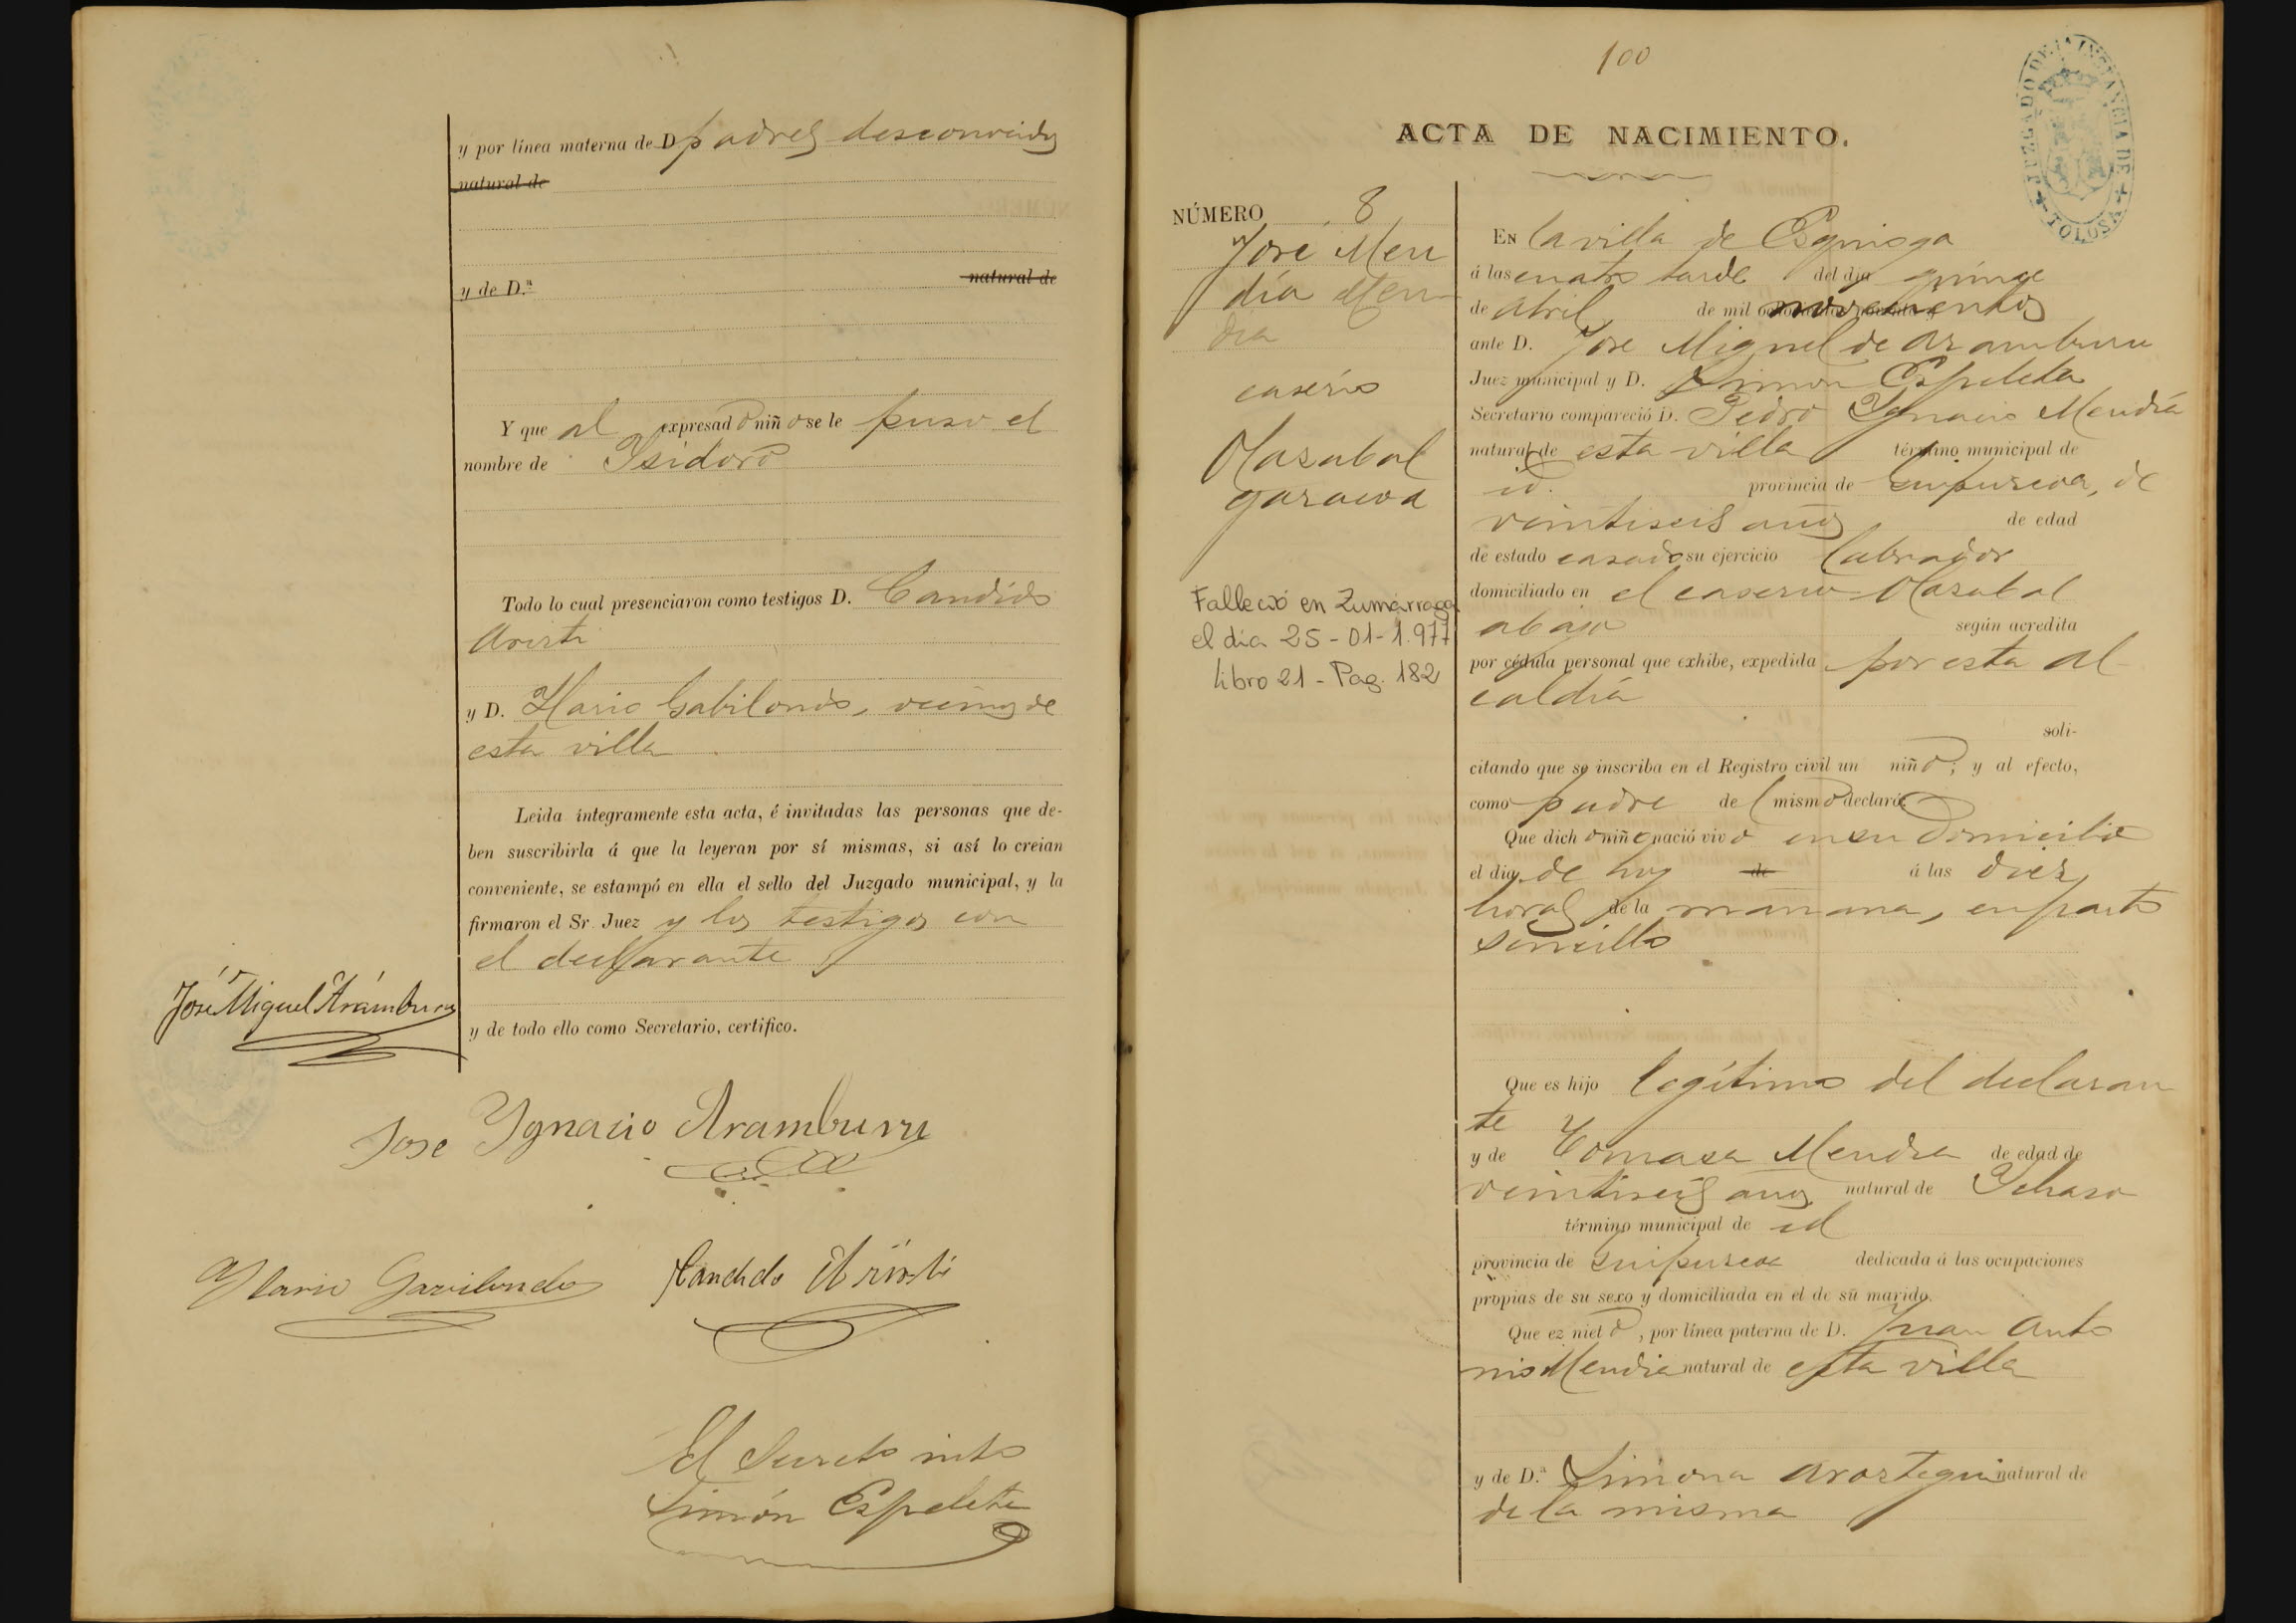 y por línea materna de D padres desconocidos
natural de
y de D.ª natural de
Y que al expresado niño se le puso el
nombre de Isidoro
Todo lo cual presenciaron como testigos D. Candido
Aristi
y D. Ylario Gabilondo, vecinos de
esta villa
Leida íntegramente esta acta, é invitadas las personas que de-
ben suscribirla á que la leyeran por sí mismas, si así lo creian
conveniente, se estampó en ella el sello del Juzgado municipal, y la
firmaron el Sr. Juez y los testigos con
el declarante
José Miguel Arámburu
y de todo ello como Secretario, certifico.
Jose Ygnacio Aramburu
Ylario Gavilondo Candido Aristi
El Secreto into
Simón Espeleta
100
ACTA DE NACIMIENTO.
JUZGADO DE 1ª INSTANCIA DE TOLOSA
NÚMERO 8
José Men
día Men
dia
caserío
Olazabal
garaicoa
Falleció en Zumárraga
el día 25-01-1.977
Libro 21 - Pag. 182
EN la villa de Ezquioga
á las cuatro tarde del dia quince
de Abril de mil novecientos
ante D. José Miguel de Aramburu
Juez municipal y D. Simon Espeleta
Secretario compareció D. Pedro Ygnacio Mendía
natural de esta villa término municipal de
id. provincia de Guipuzcoa, de
veintiseis años de edad
de estado casado su ejercicio labrador
domiciliado en el caserio Olazabal
abajo según acredita
por cédula personal que exhibe, expedida por esta al
caldía
soli-
citando que se inscriba en el Registro civil un niño; y al efecto,
como padre del mismo declaró:
Que dicho niño nació vivo en su domicilio
el dia de hoy de á las diez
horas de la mañana, en parto
sencillo
Que es hijo legítimo del declaran
te
y de Tomasa Mendia de edad de
veintiseis años natural de Ychaso
término municipal de id
provincia de Guipuzcoa dedicada á las ocupaciones
propias de su sexo y domiciliada en el de su marido.
Que ez nieto, por línea paterna de D. Juan Anto
nio Mendia natural de esta villa
y de D.ª Simona Aroztegui natural de
de la misma